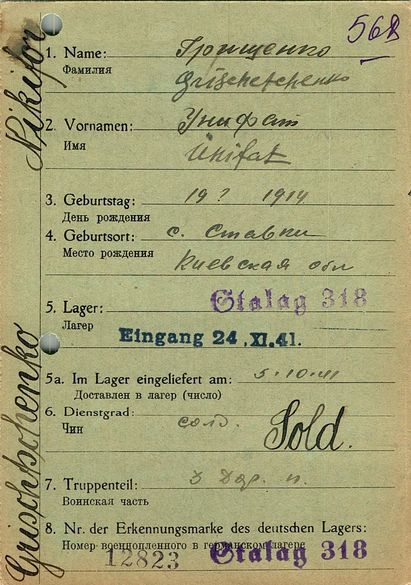 568
Nikifor
Grischtschenko
1. Name: Грищенко
Фамилия Grischetschenko
2. Vornamen: Унифат
Имя Unifat
3. Geburtstag: 19? 1914
День рождения
4. Geburtsort: с. Ставки
Место рождения Киевская обл
5. Lager: Stalag 318
Лагер
Eingang 24. XI. 41.
5a. Im Lager eingeliefert am: 5.10.41
Доставлен в лагер (число)
6. Dienstgrad: солд. Sold.
Чин
7. Truppenteil: 3 Дор. п.
Воинская часть
8. Nr. der Erkennungsmarke des deutschen Lagers:
Номер военнопленного в германском лагере
12823 Stalag 318